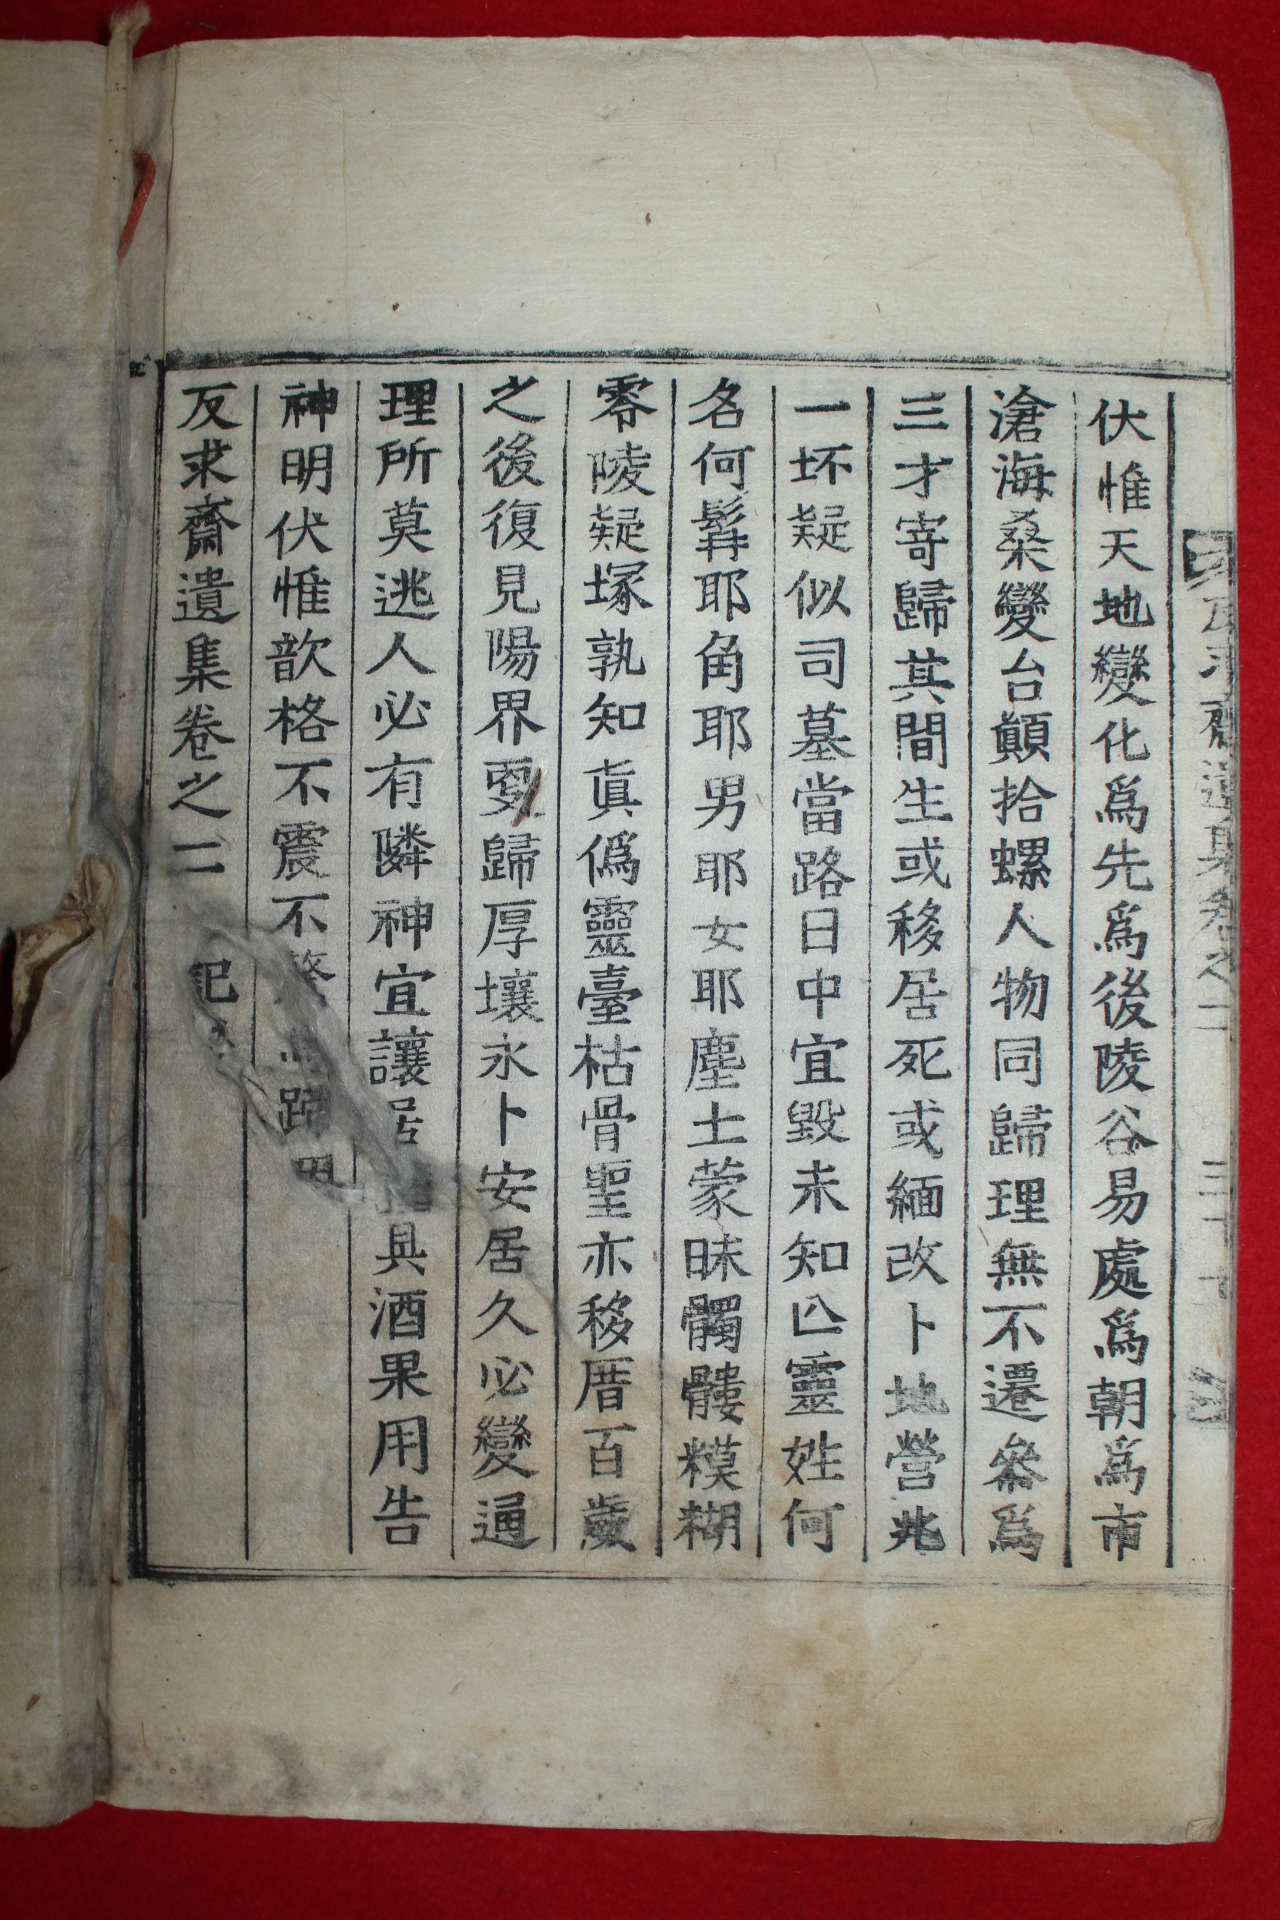 伏惟天地變化爲先爲後陵谷易處爲朝爲市
滄海桑變台巓拾螺人物同歸理無不遷叅爲
三才寄歸其間生或移居死或緬改卜地營兆
一坏疑似司墓當路日中宜毀未知亾靈姓何
名何髯耶角耶男耶女耶塵土蒙昧髑髏糢糊
零陵疑塚孰知眞僞靈臺枯骨聖亦移厝百歲
之後復見陽界更歸厚壤永卜安居久必變通
理所莫逃人必有隣神宜讓居具酒果用告
神明伏惟歆格不震不
反求齋遺集卷之二
反求齋遺集卷之二